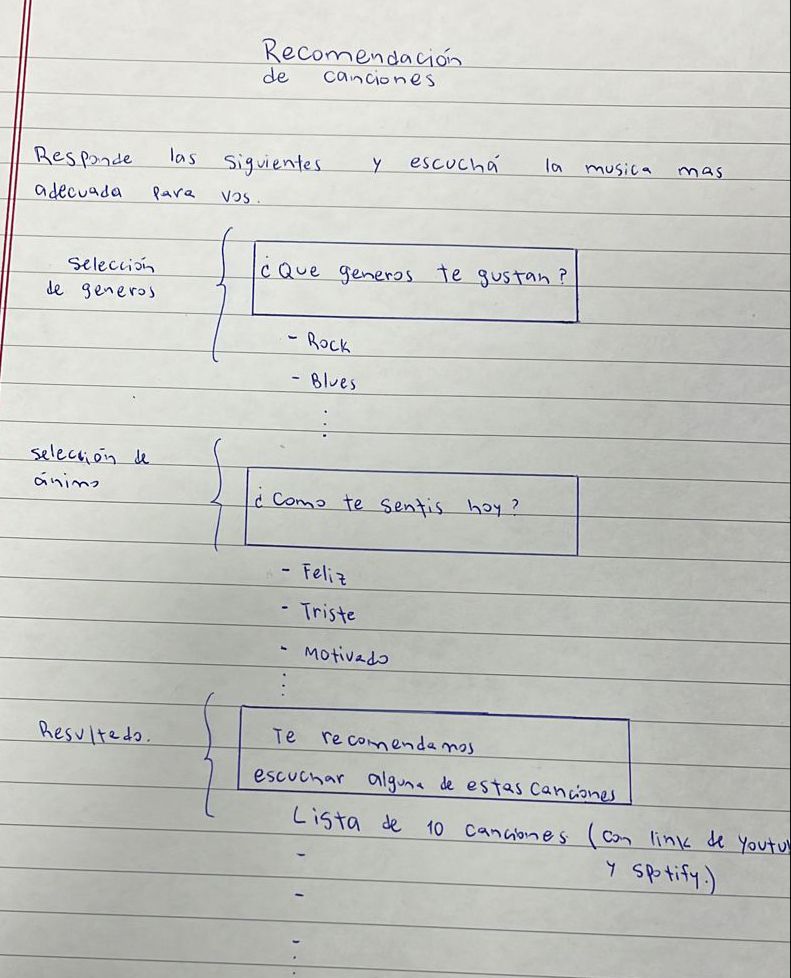 Recomendación
de canciones
Responde las siguientes y escuchá la musica mas
adecuada para vos.
Selección
de generos
¿Que generos te gustan?
- Rock
- Blues
selección de
ánimo
¿Como te sentis hoy?
- Feliz
- Triste
- Motivado
Resultado.
Te recomendamos
escuchar alguna de estas canciones
Lista de 10 canciones (con link de Youtu
y spotify.)
-
-
-